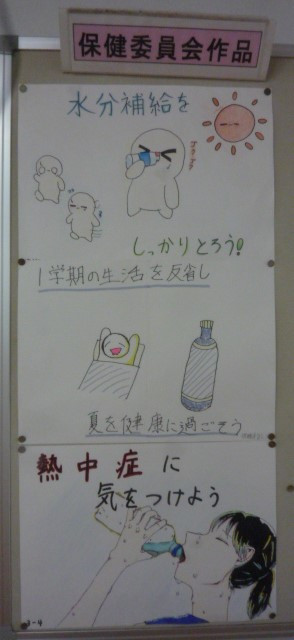 保健委員会作品
水分補給を
ゴクゴク
しっかりとろう!
1学期の生活を反省し
夏を健康に過ごそう
熱中症に
気をつけよう
3-4